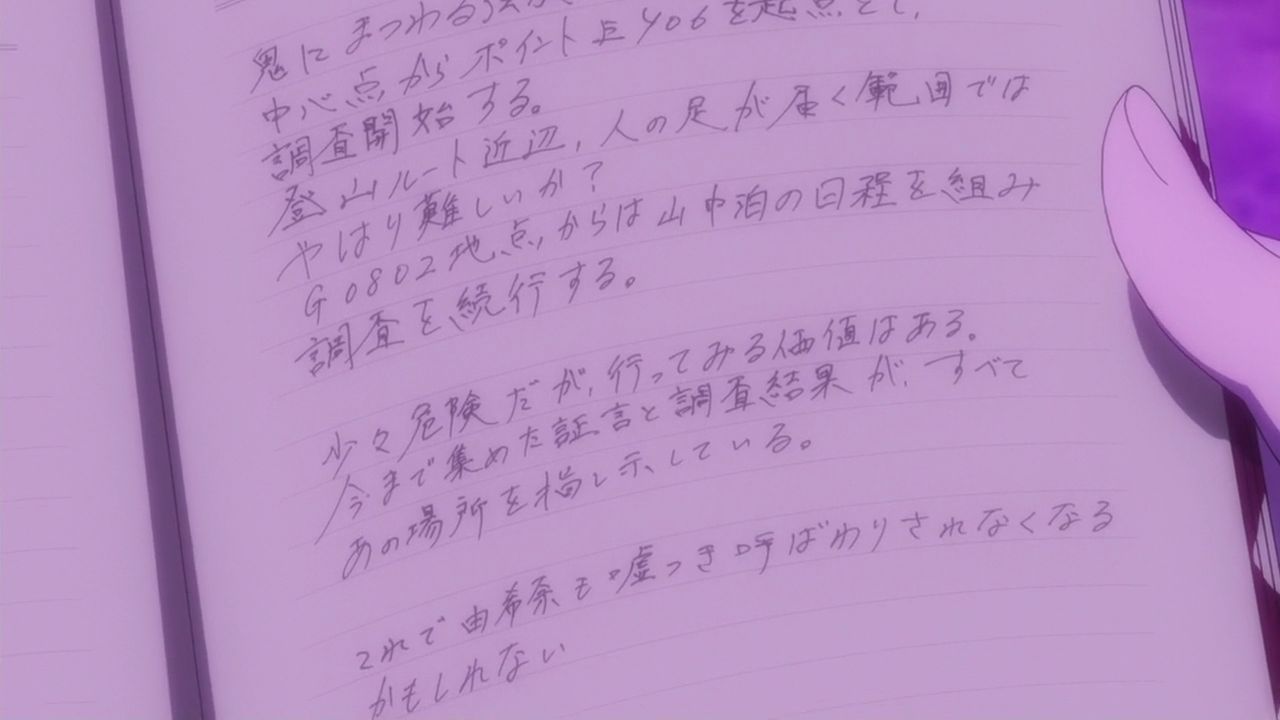 鬼にまつわる
中心点からポイントE406を起点とし、
調査開始する。
登山ルート近辺、人の足が届く範囲では
やはり難しいか？
G0802地点からは山中泊の日程を組み
調査を続行する。
少々危険だが、行ってみる価値はある。
今まで集めた証言と調査結果が、すべて
あの場所を指し示している。
これで由希奈も嘘つき呼ばわりされなくなる
かもしれない